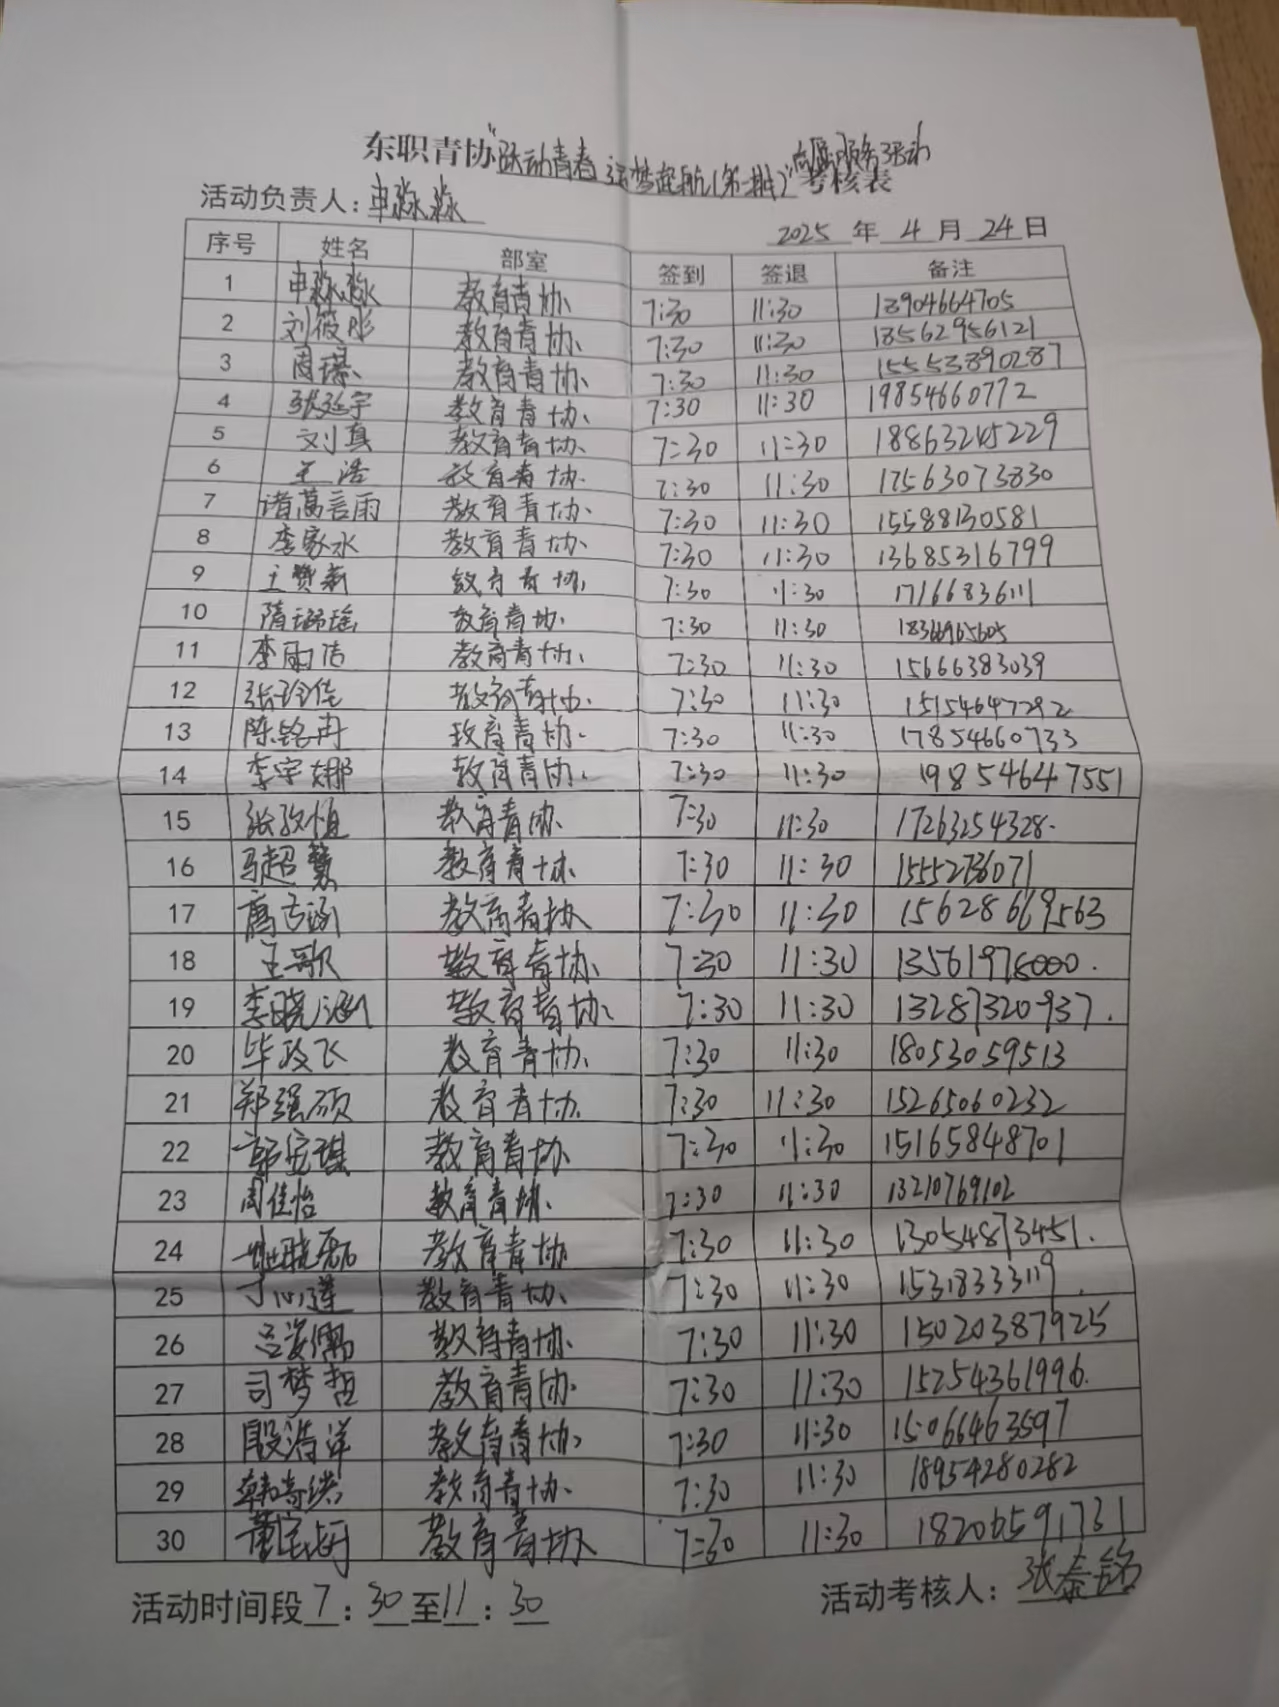 东职青协"跃动青春 运梦起航(第一批)"志愿服务活动考核表
活动负责人：申淼淼
2025 年 4 月 24 日
序号 姓名 部室 签到 签退 备注
1 申淼淼 教育青协 7:30 11:30 13904664705
2 刘筱彤 教育青协 7:30 11:30 18562956121
3 周璟 教育青协 7:30 11:30 15553890287
4 张延宇 教育青协 7:30 11:30 19854660772
5 刘真 教育青协 7:30 11:30 18863245229
6 王浩 教育青协 7:30 11:30 17563073830
7 诸葛言雨 教育青协 7:30 11:30 15588130581
8 李家水 教育青协 7:30 11:30 13685316799
9 王赞新 教育青协 7:30 11:30 17166836111
10 隋璐瑶 教育青协 7:30 11:30 18366965605
11 李雨洁 教育青协 7:30 11:30 15666383039
12 张玲佳 教育青协 7:30 11:30 15154647292
13 陈铭冉 教育青协 7:30 11:30 17854660733
14 李宇娜 教育青协 7:30 11:30 19854647551
15 张孜恒 教育青协 7:30 11:30 17263254328
16 马超慧 教育青协 7:30 11:30 15552736071
17 高古涵 教育青协 7:30 11:30 15628669563
18 王歌 教育青协 7:30 11:30 13561976000
19 李晓涵 教育青协 7:30 11:30 13287320937
20 毕政飞 教育青协 7:30 11:30 18053059513
21 郑强硕 教育青协 7:30 11:30 15265060232
22 郭宝琪 教育青协 7:30 11:30 15165848701
23 周佳怡 教育青协 7:30 11:30 13210769102
24 教育青协 7:30 11:30 13054873451
25 丁心莲 教育青协 7:30 11:30 15318333119
26 吕姿儒 教育青协 7:30 11:30 15020387925
27 司梦哲 教育青协 7:30 11:30 15254361996
28 殷浩洋 教育青协 7:30 11:30 15066463597
29 韩奇洪 教育青协 7:30 11:30 18954280282
30 董宝研 教育青协 7:30 11:30 18206591731
活动时间段 7：30 至 11：30
活动考核人：张泰铭